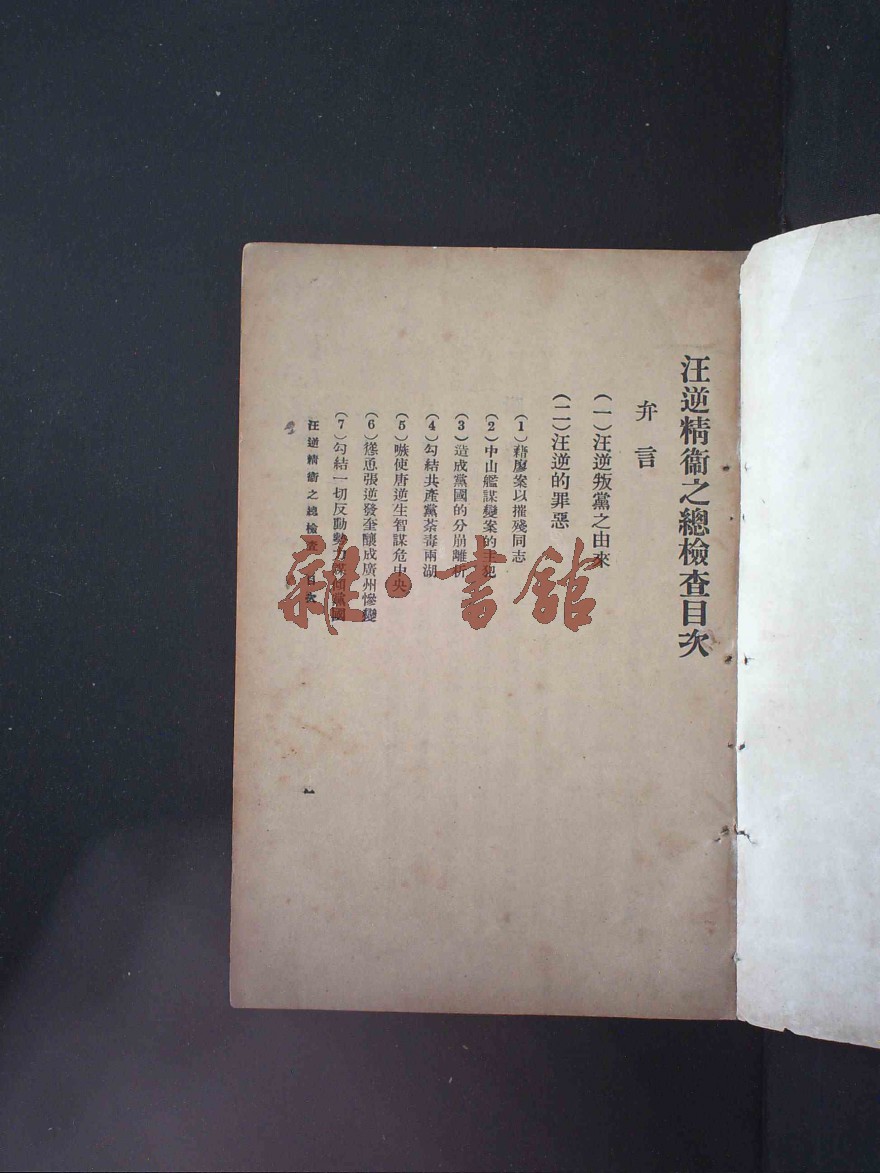 汪逆精衞之總檢查目次
弁言
(一)汪逆叛黨之由來
(二)汪逆的罪惡
(1)藉廖案以摧殘同志
(2)中山艦謀變案的主犯
(3)造成黨國的分崩離析
(4)勾結共產黨荼毒兩湖
(5)嗾使唐逆生智謀危中央
(6)慫恿張逆發奎釀成廣州慘變
(7)勾結一切反動勢力謀傾黨國
汪逆精衞之總檢查 目次
一
雜·書館